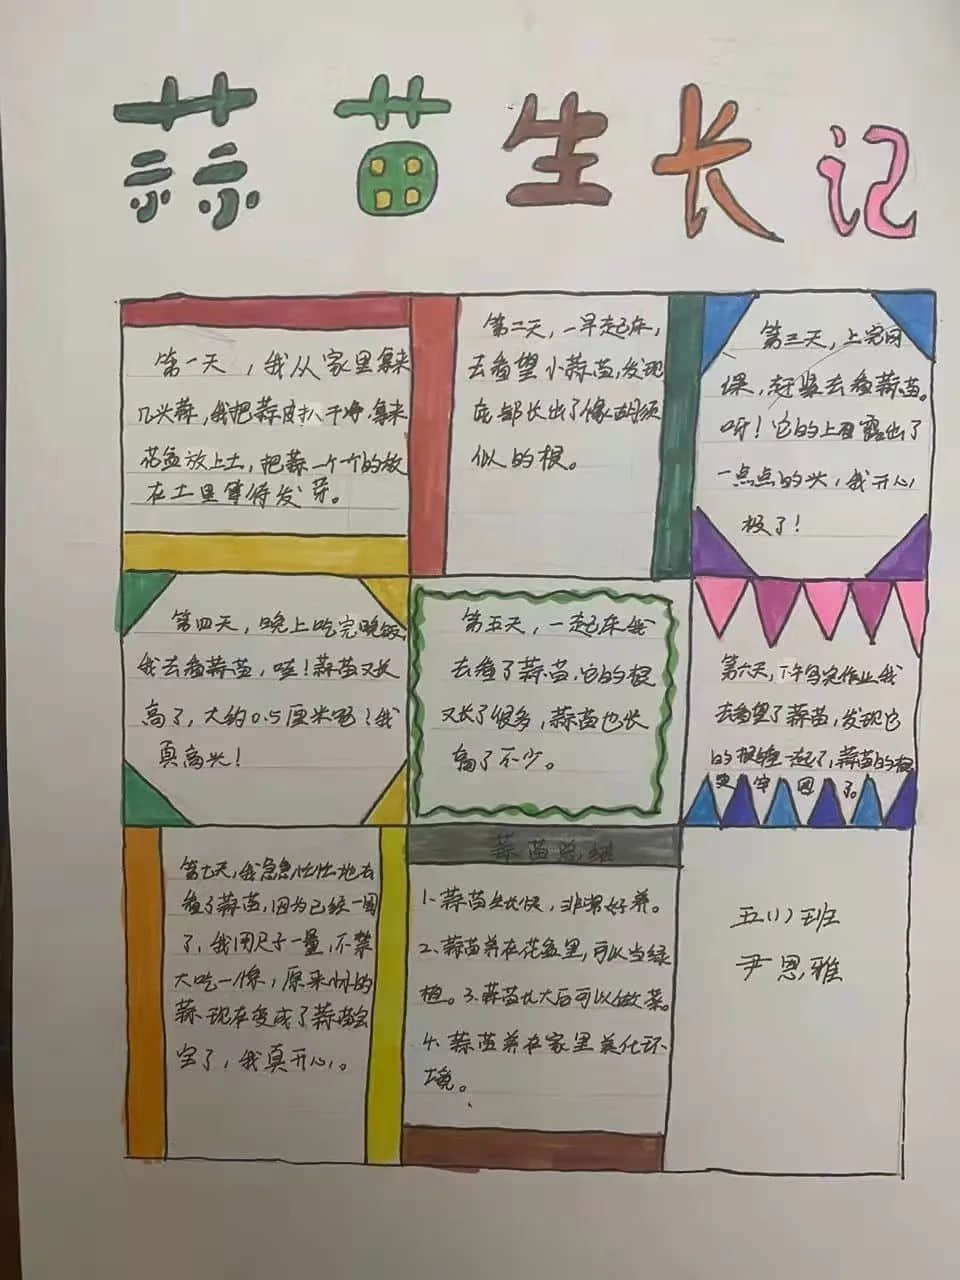 蒜苗生长记
第一天，我从家里拿来
几头蒜，我把蒜皮扒干净，拿来
花盆放上土，把蒜一个个的放
在土里等待发芽。
第二天，一早起床，
去看望小蒜苗，发现
底部长出了像胡须
似的根。
第三天，上完网
课，赶紧去看蒜苗。
呀！它的上面露出了
一点点的头，我开心
极了！
第四天，晚上吃完晚饭
我去看蒜苗，哇！蒜苗又长
高了，大约0.5厘米呢？我
真高兴！
第五天，一起床我
去看了蒜苗，它的根
又长了很多，蒜苗也长
高了不少。
第六天，下午写完作业我
去看望了蒜苗，发现它
的根缠一起了，蒜苗的根
变牢固了。
第七天，我急急忙忙地去
看了蒜苗，因为已经一周
了，我用尺子一量，不禁
大吃一惊，原来小小的
蒜现在变成了蒜苗宝
宝了，我真开心。
蒜苗总结
1、蒜苗生长快，非常好养。
2、蒜苗养在花盆里，可以当绿
植。3、蒜苗长大后可以做菜。
4、蒜苗养在家里美化环
境。
五(1)班
尹恩雅